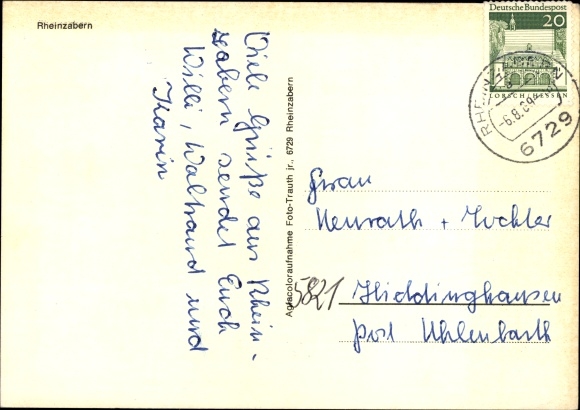 Rheinzabern
Viele Grüße aus Rhein-
zabern sendet Euch
Willi, Waltraud und
Karin
Agfacoloraufnahme Foto-Trauth jr., 6729 Rheinzabern
Deutsche Bundespost
20
LORSCH/HESSEN
RHEINZABERN
-6.8.69
6729
Frau
Neurath + Tochter
5821 Hiddinghausen
post Uhlenbach